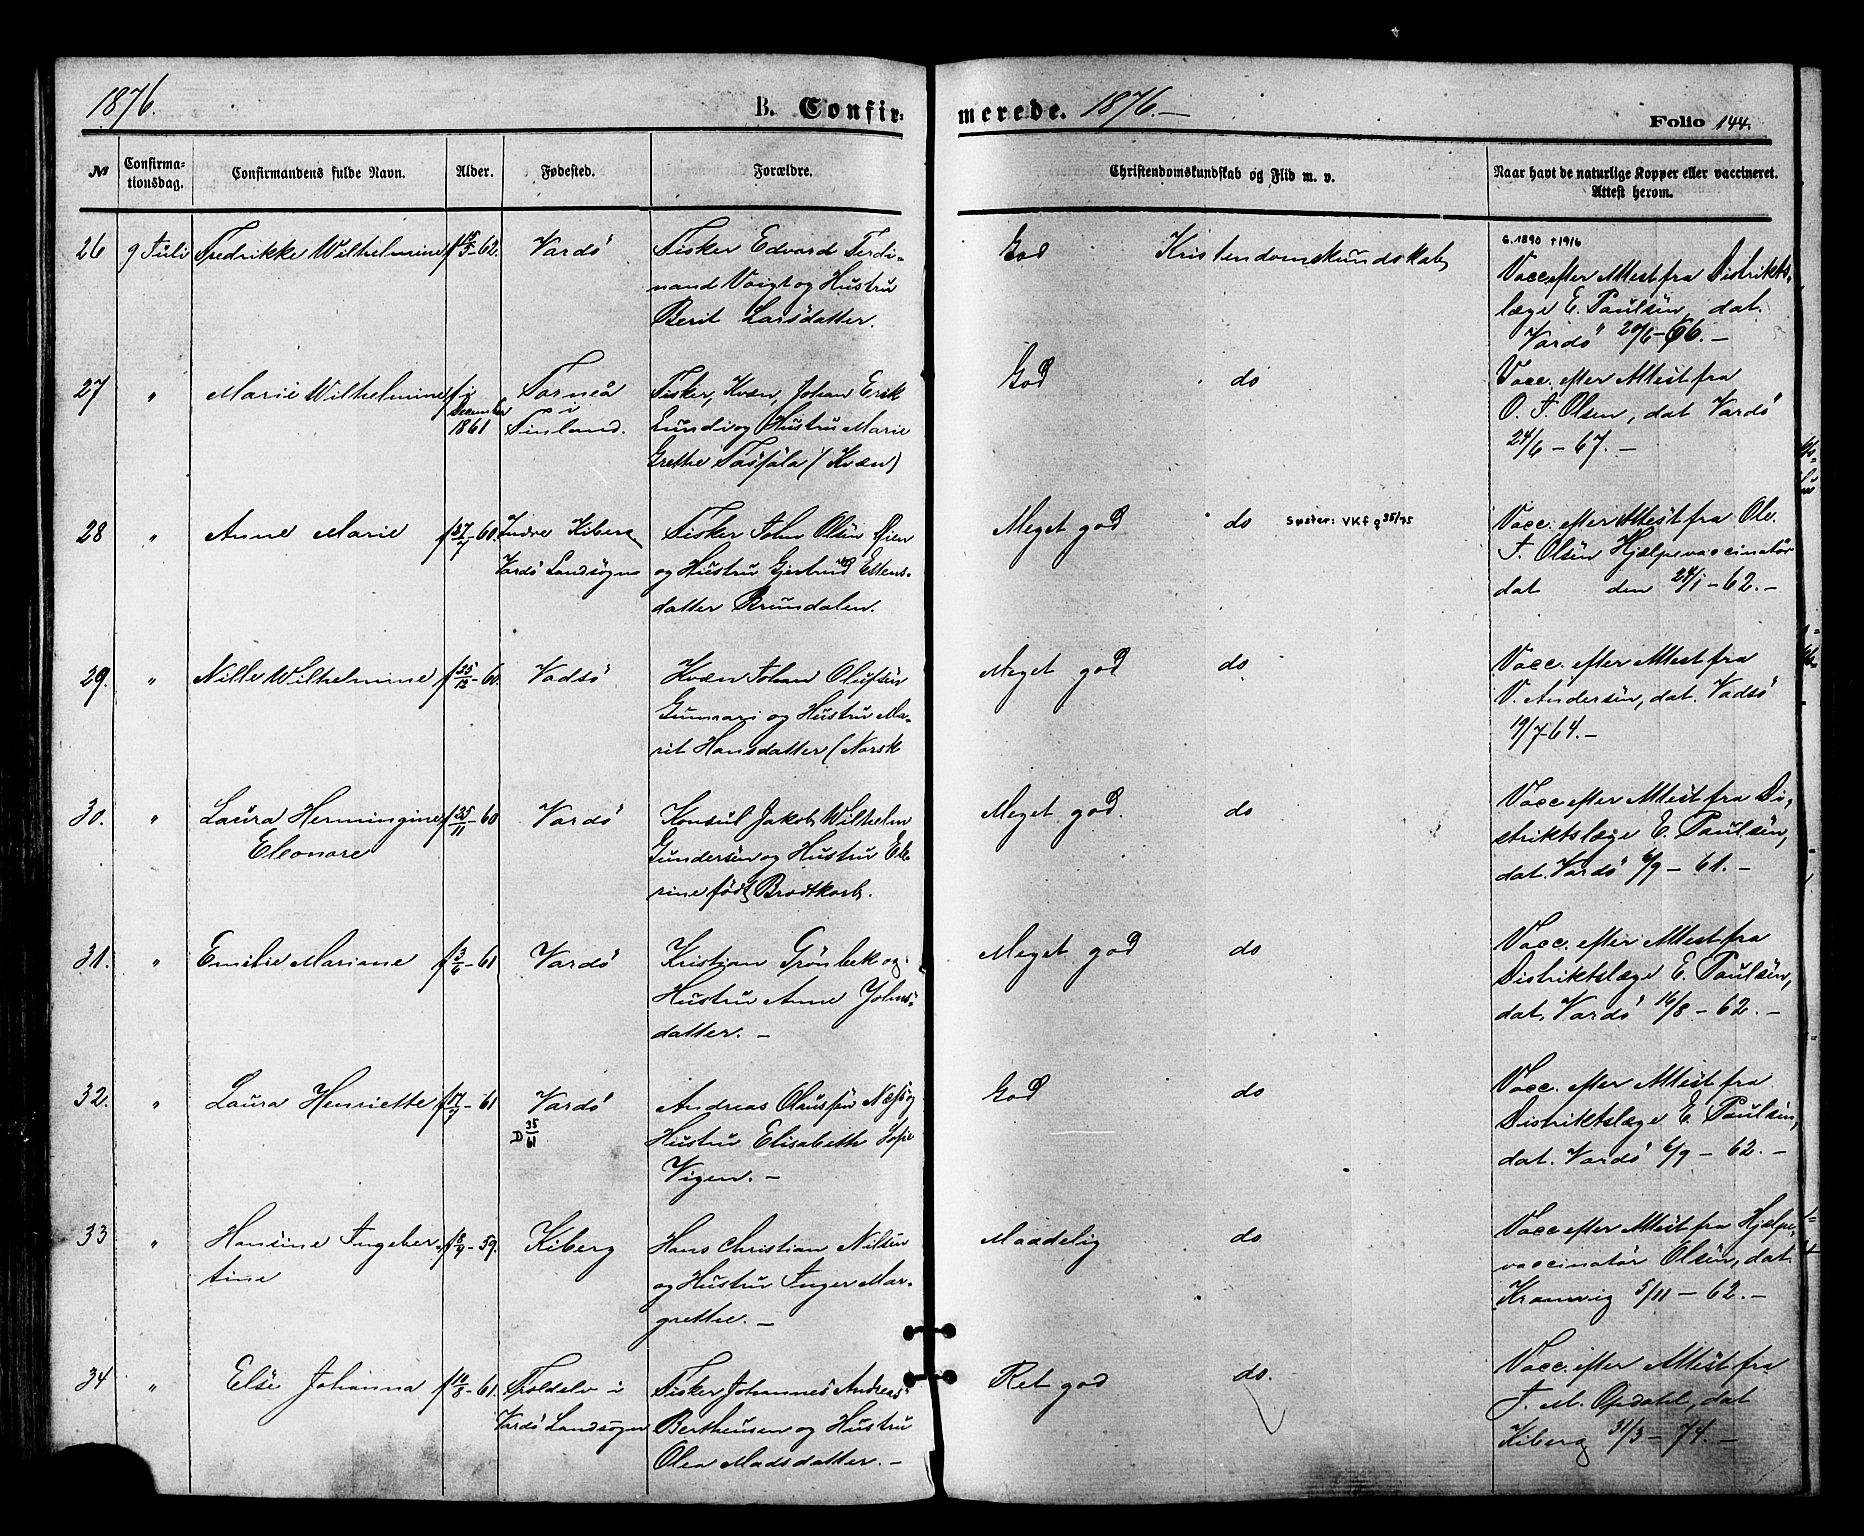 1876. B. Confir- merede. 1876.- Folio 144.
№ Confirma-tionsdag. Confirmandens fulde Navn. Alder. Fødested. Forældre. Christendomskundskab og Flid m. v. Naar havt de naturlige Kopper eller vaccineret. Attest herom.
26 9 Juli Fredrikke Wilhelmine f 15/5-62. Vardö Fisker Edvard Ferdi- God Kristendomskundskab G. 1890 +1916
nand Voigt og Hustru Vacc. efter Attest fra Distrikts-
Berit Larsdatter. læge E. Paulsen, dat.
Vardö 20/6-66.-
27 " Marie Wilhelmine f i Torneå Fisker, Kvæn, Johan Erik God do Vacc. efter Attest fra
December i Lundi og Hustru Marie O. J. Olsen, dat Vardö
1861 Finland. Grethe (Kvæn) 24/6-67.-
28 " Anne Marie f 27/7-60. Indre Kiberg Fisker John Olsen Øien Meget god do Søster: VKf 9 35/75 Vacc. efter Attest fra Ole
Vardö Landsogn og Hustru Gjertrud Estens- J. Olsen Hjælpevaccinatör
datter Brundalen. dat den 24/1-62.-
29. " Nille Wilhelmine f 25/12-60. Vadsö Kvæn Johan Olufsen Meget god do. Vacc. efter Attest fra
Gunnari og Hustru Ma- V. Andersen, dat. Vadsö
rit Hansdatter (Norsk 19/7 64.-
30. " Laura Hermingine f 25/11-60 Vardö Konsul Jakob Wilhelm Meget god. do Vacc efter Attest fra Di-
Eleonore Gundersen og Hustru Ele- striktslæge E. Paulsen,
rine född Brodtkorb. dat. Vardö 6/9-61.-
31. " Emilie Mariane f 3/6-61 Vardö Kristian Grönbek og Meget god do Vacc. efter Attest fra
Hustru Anne Johns- Distriktslæge E. Paulsen,
datter.- dat. Vardö 16/8-62.-
32. " Laura Henriette f 17/7-61 Vardö Andreas Olaussen Næss og God do Vacc. efter Attest fra
D 35/61 Hustru Elisabeth Sofie Distriktslæge E. Paulsen,
Vigen.- dat. Vardö 6/9-62.-
33 " Hansine Ingeber- f 8/9-59. Kiberg Hans Christian Nilsen Maadelig do Vacc efter Attest fra Hjælpe-
tine og Hustru Inger Mar- vaccinatör Olsen, dat.
grethe.- Kramvig 5/11-62.-
34 " Else Johanna f 10/8-61. Troldelv i Fisker Johannes Andreas Ret god do. Vacc. efter Attest fra
Vardö Landsogn Bertheusen og Hustru J. M. Opdahl, dat
Olea Madsdatter.- Kiberg 31/3-74.-